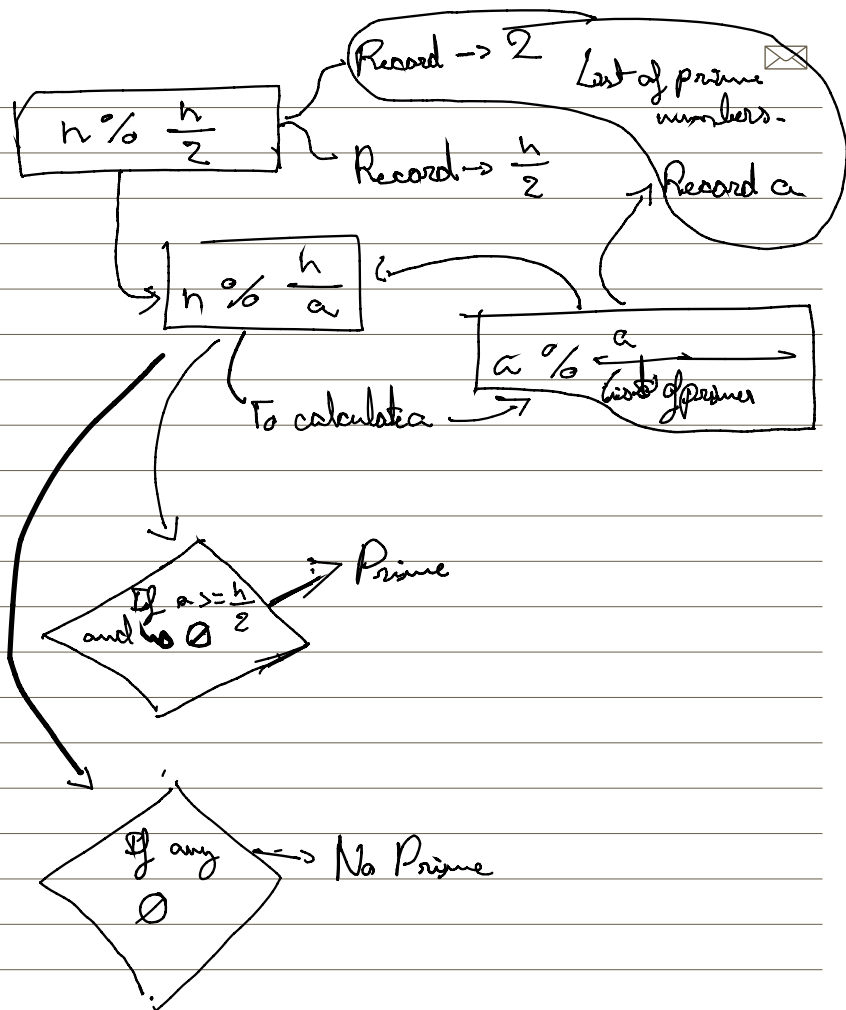 Record → 2
List of prime
numbers.
n % n/2
Record → n/2
Record a
n % n/a
a % a
List of primes
To calculate a
Prime
If a >= n/2
and no ∅
If any
∅
No Prime